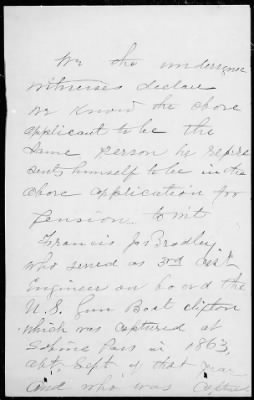 We the undersigned
witnesses declare
we know the above
applicant to be the
same person he repre
sents himself to be in the
above application for
pension to wit
Francis Jos Bradley
who served as 3rd Asst
Engineer on board the
U.S. Gun Boat Clifton
which was captured at
Sabine Pass in 1863,
abt. Sept. of that year
and who was